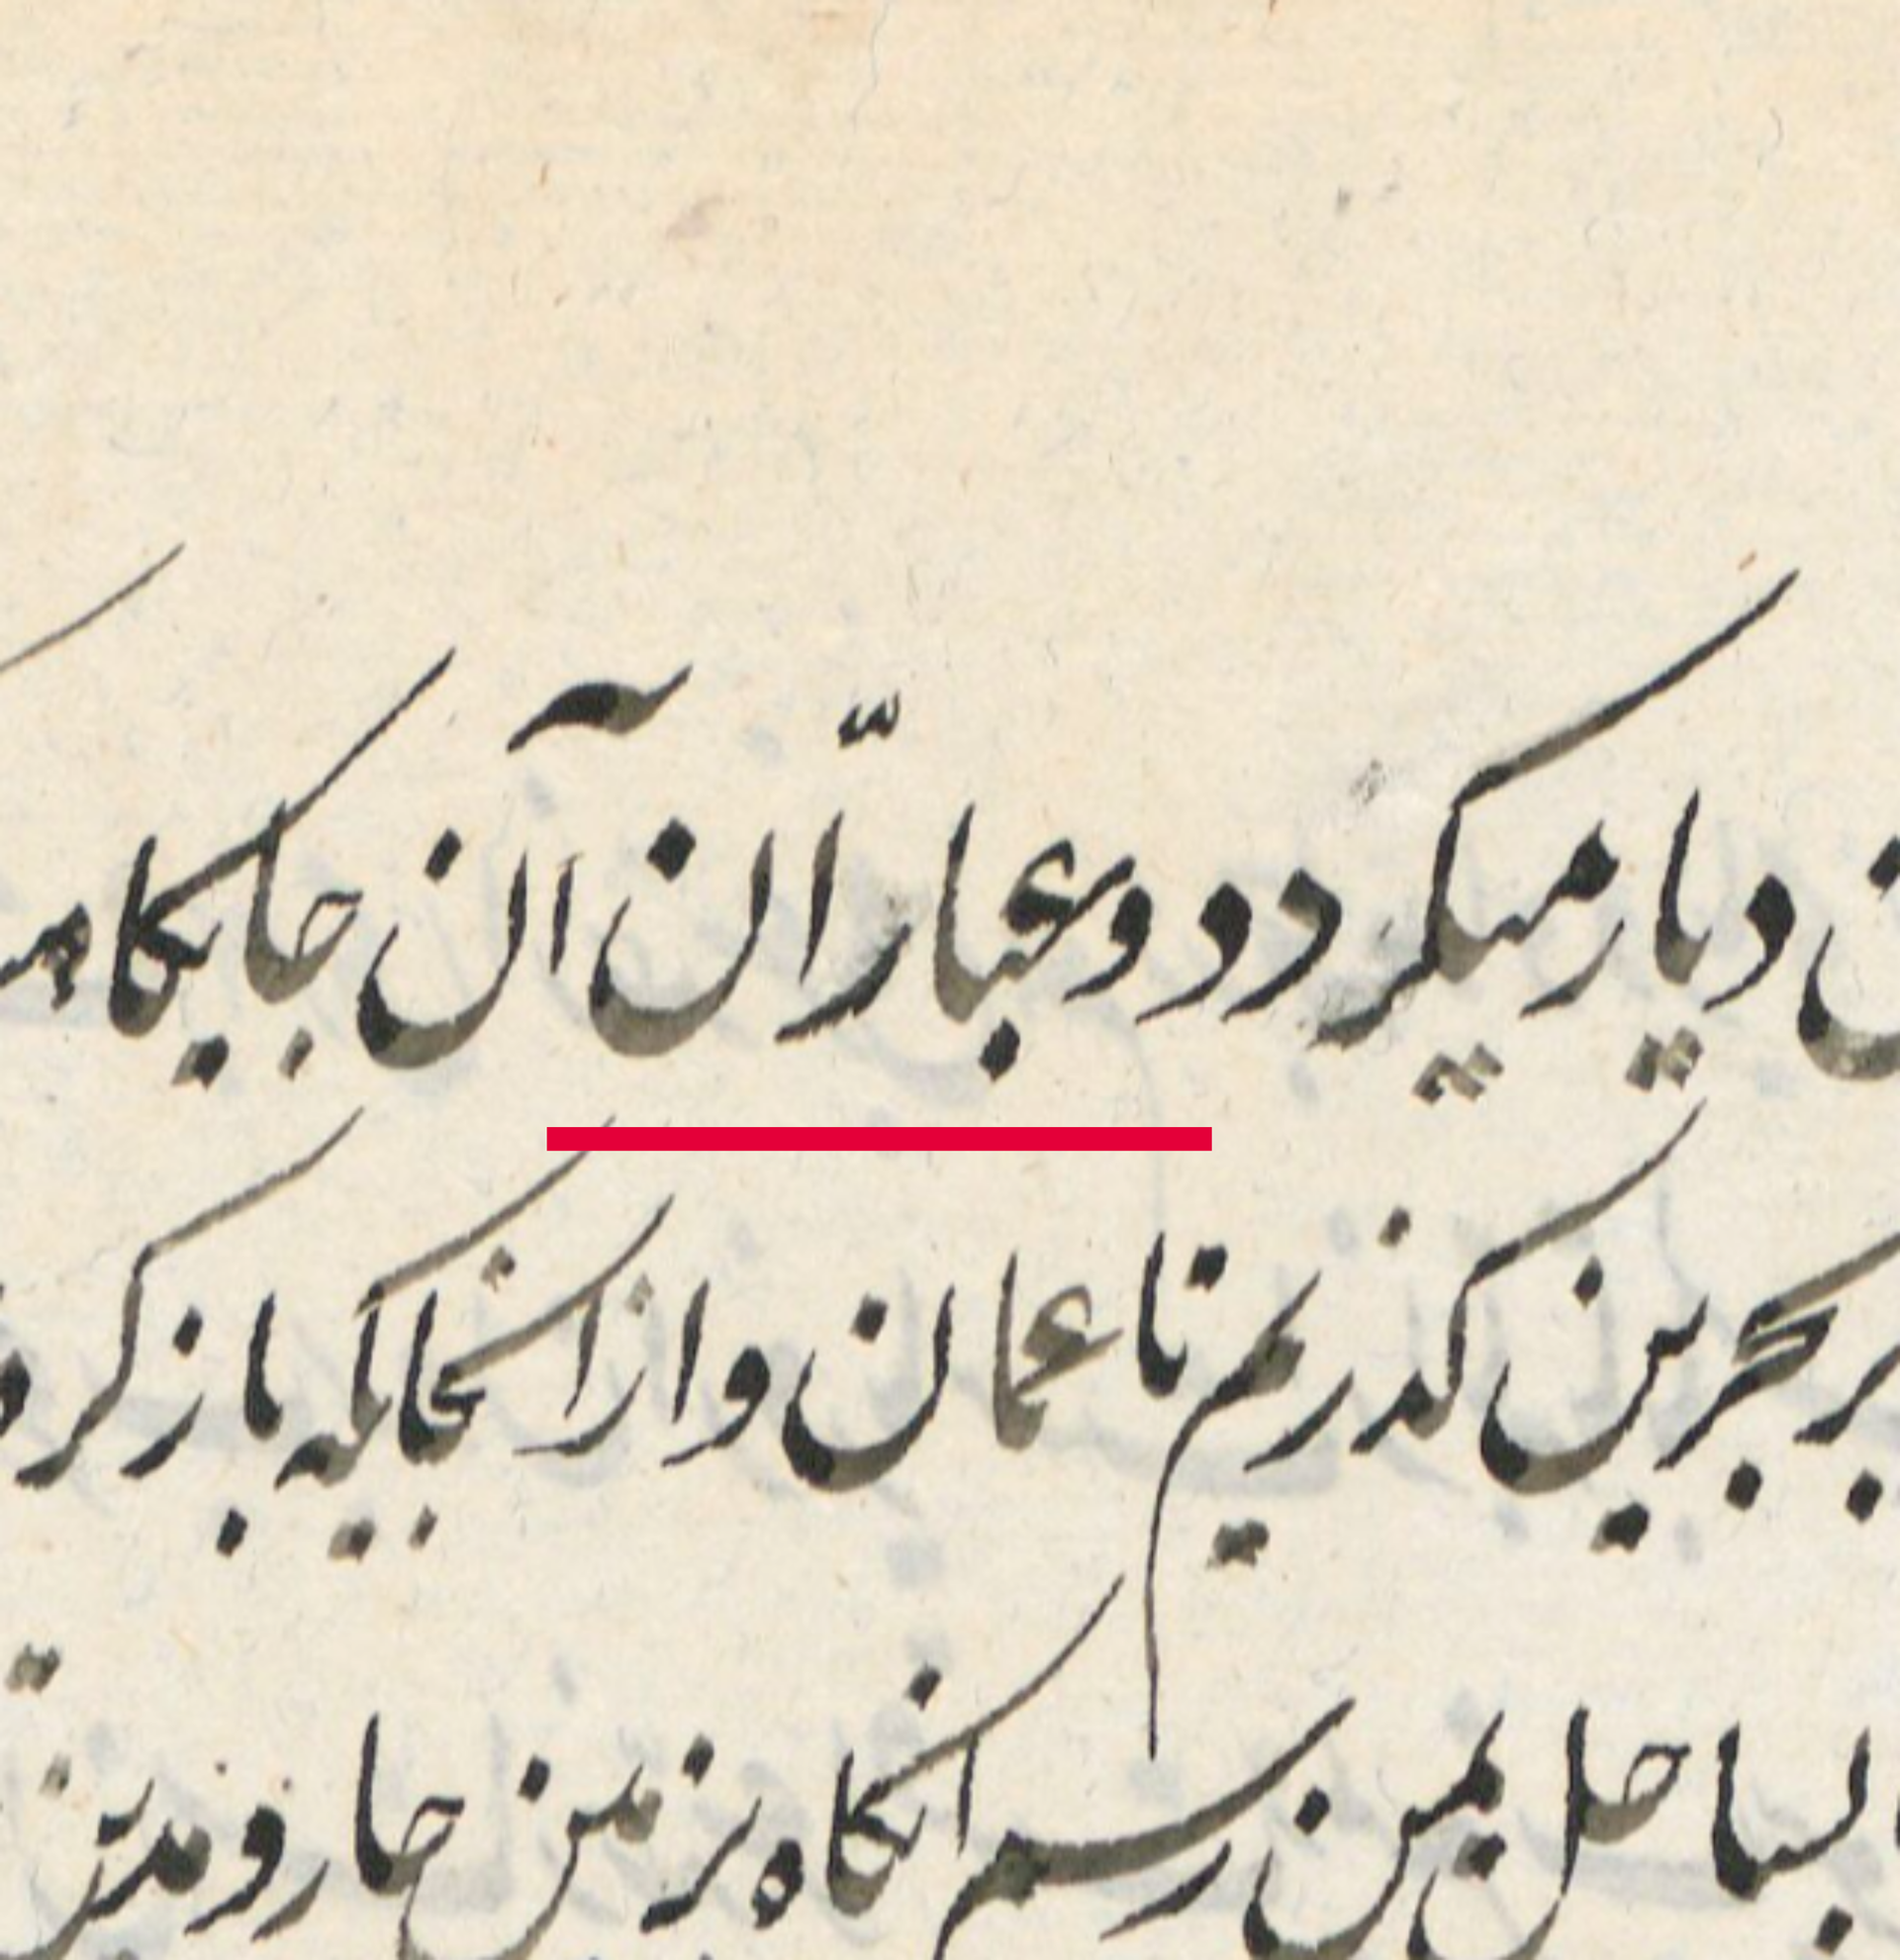 دیار میکردد و عبارّان آن جایکاه
بر بحرین کذریم تا عمان و از انجایکه باز کرد
بساحل یمن رسیم انکاه بر زمین حار و مدین